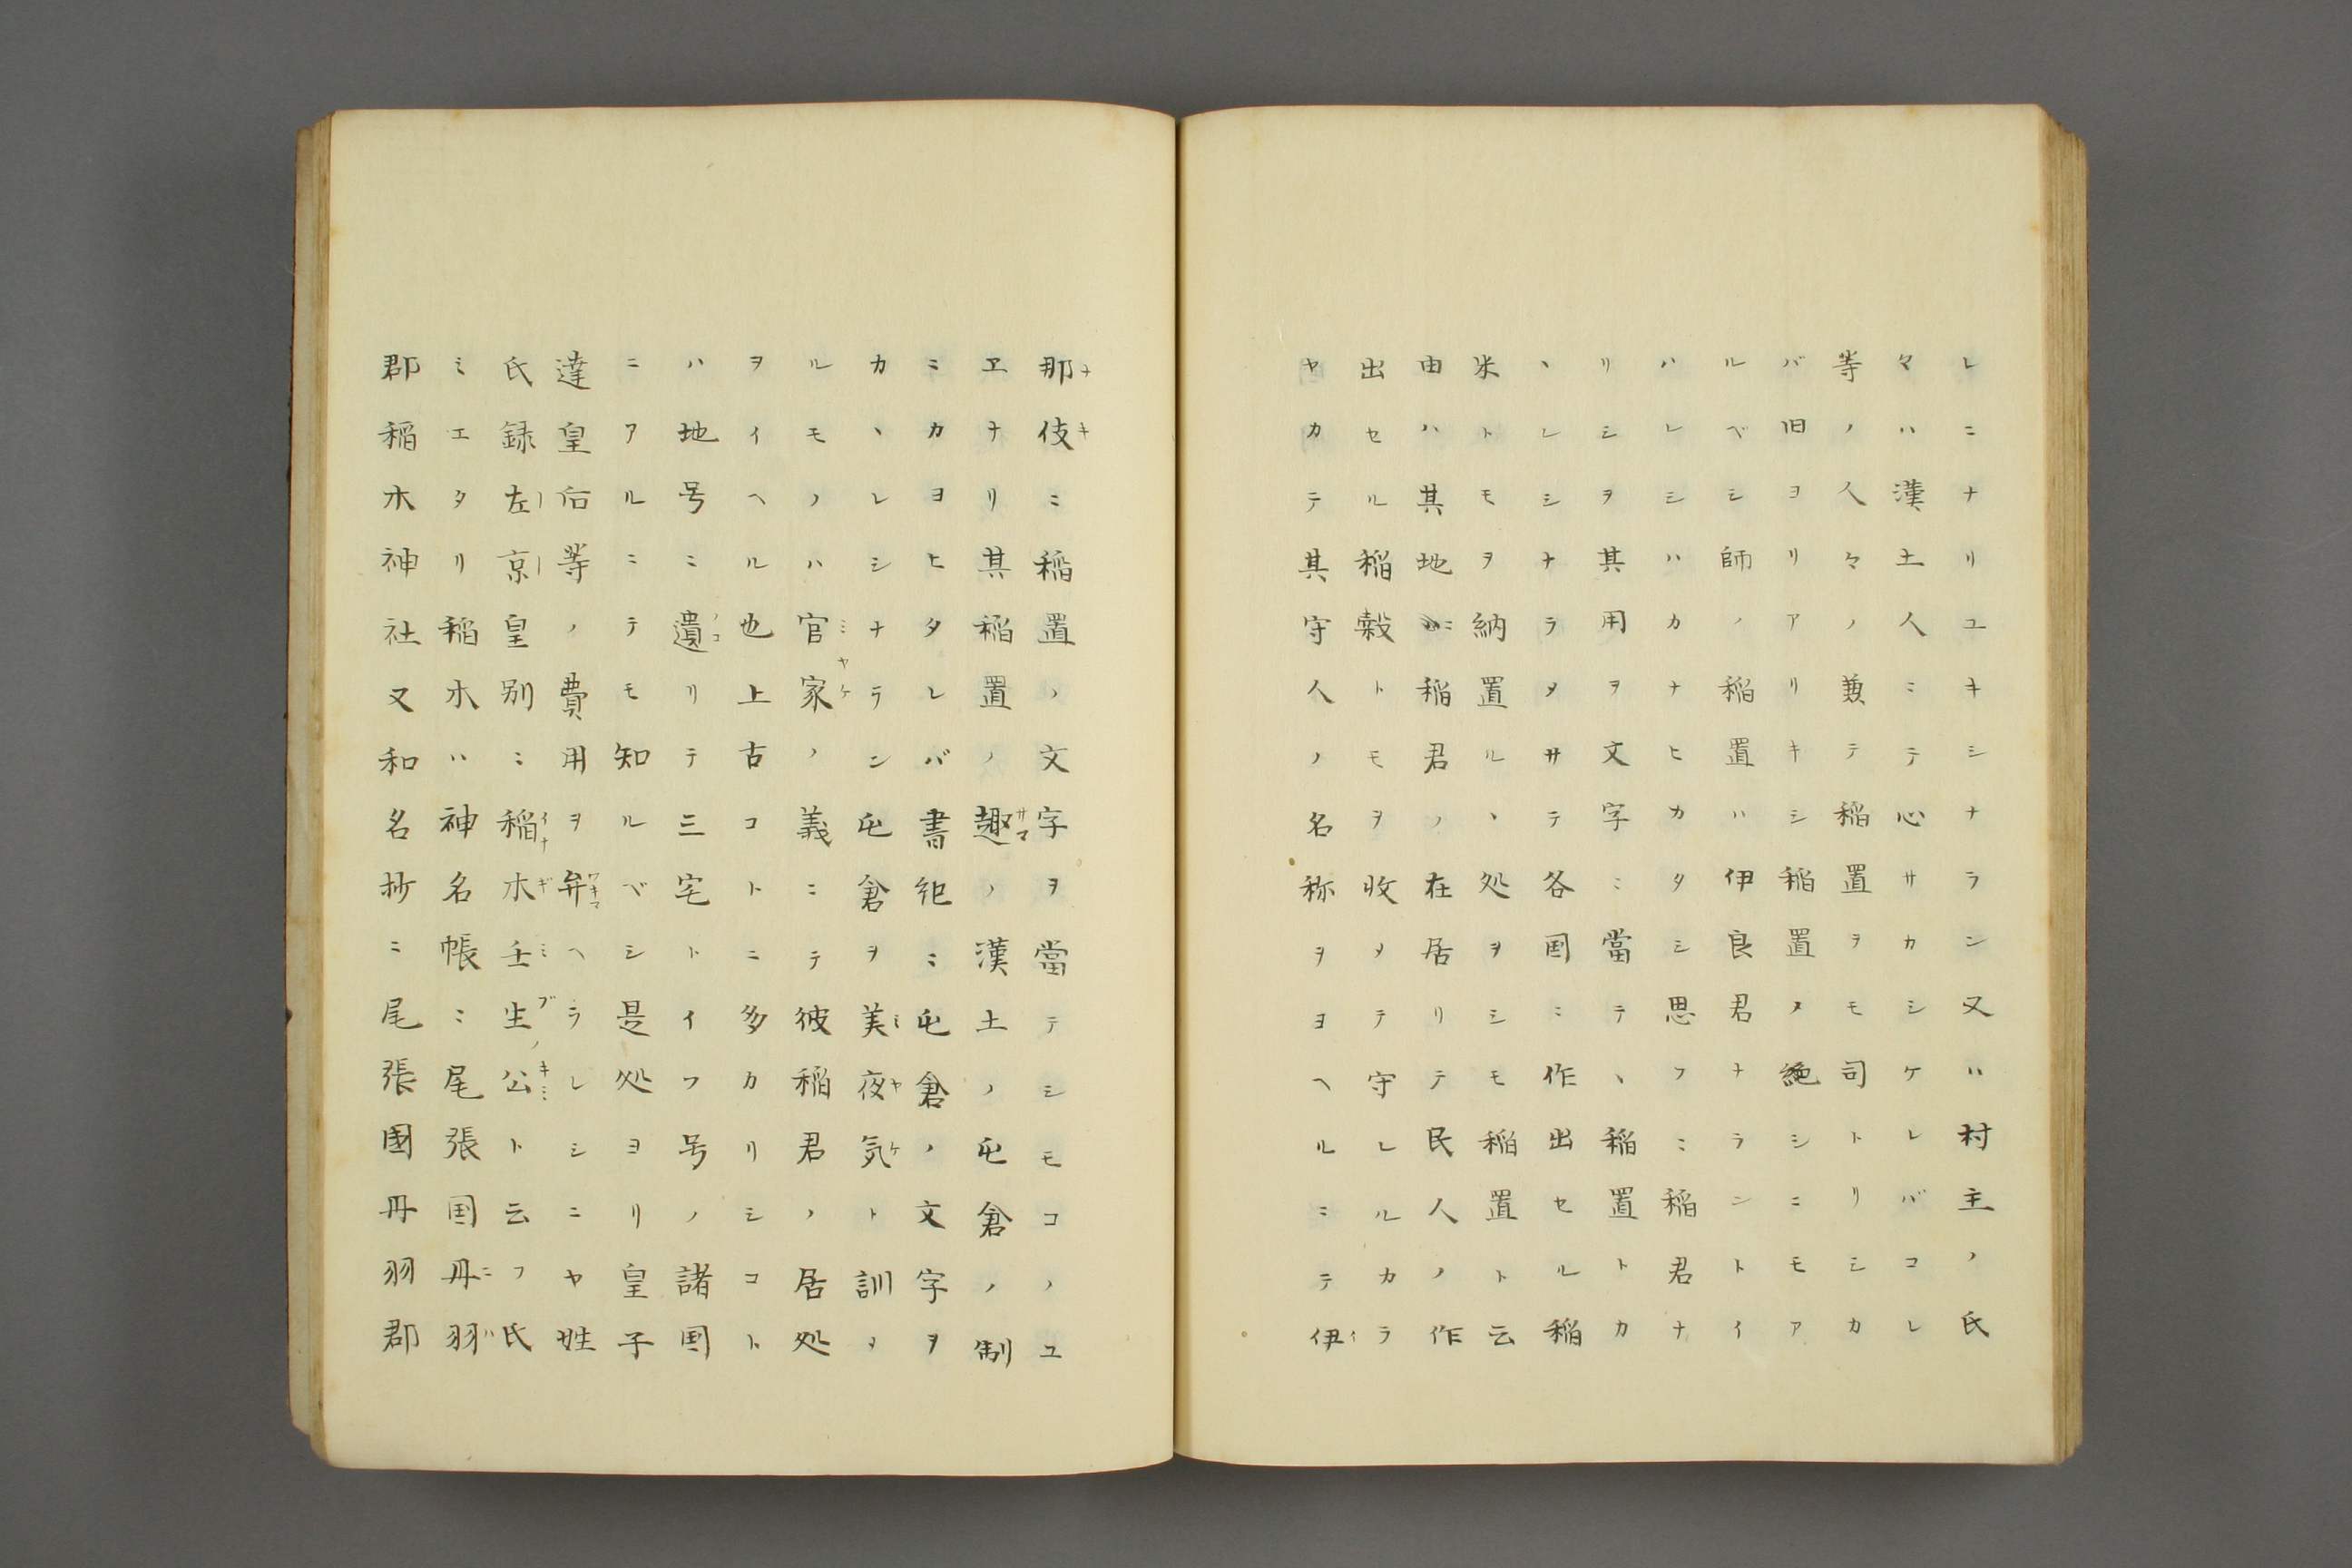 レニナリユキシナラン又ハ村主ノ氏
々ハ漢土人ニテ心サカシケレバコレ
等ノ人々ノ兼テ稲置ヲモ司トリシカ
バ旧ヨリアリキシ稲置メ絶シニモア
ルベシ師ノ稲置ハ伊良君ナラントイ
ハレシハカナヒカタシ思フニ稲君ナ
リシヲ其用ヲ文字ニ當テヽ稲置トカ
ヽレシナラメサテ各国ニ作出セル稲
米トモヲ納置ルヽ処ヲシモ稲置ト云
由ハ其地ニ稲君ノ在居リテ民人ノ作
出セル稲穀トモヲ收メテ守レルカラ
ヤカテ其守人ノ名称ヲヨヘルニテ伊イ
那ナ伎キニ稲置ノ文字ヲ當テシモコノユ
ヱナリ其稲置ノ趣サマノ漢土ノ屯倉ノ制
ニカヨヒタレバ書紀ニ屯倉ノ文字ヲ
カヽレシナラン屯倉ヲ美ミ夜ヤ気ケト訓メ
ルモノハ官ミ家ヤケノ義ニテ彼稲君ノ居処
ヲイヘル也上古コトニ多カリシコト
ハ地号ニ遺ノコリテ三宅トイフ号ノ諸国
ニアルニテモ知ルベシ是処ヨリ皇子
達皇后等ノ費用ヲ弁ワキマヘラレシニヤ姓
氏録左京皇別ニ稲イナ木ギ壬ミ生ブノ公キミト云フ氏
ミエタリ稲木ハ神名帳ニ尾張国丹ニ羽ハ
郡稲木神社又和名抄ニ尾張國丹羽郡